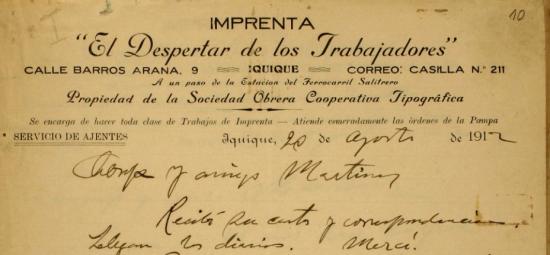 10
IMPRENTA
"El Despertar de los Trabajadores"
CALLE BARROS ARAÑA, 9 IQUIQUE CORREO: CASILLA N.° 211
A un paso de la Estacion del Ferrocarril Salitrero
Propiedad de la Sociedad Obrera Cooperativa Tipográfica
Se encarga de hacer toda clase de Trabajos de Imprenta — Atiende esmeradamente las órdenes de la Pampa
SERVICIO DE AJENTES Iquique, 20 de agosto de 1912
y amigo Martinez
Recibí su carta y correspondencia.
Llegan los diarios. Merci.